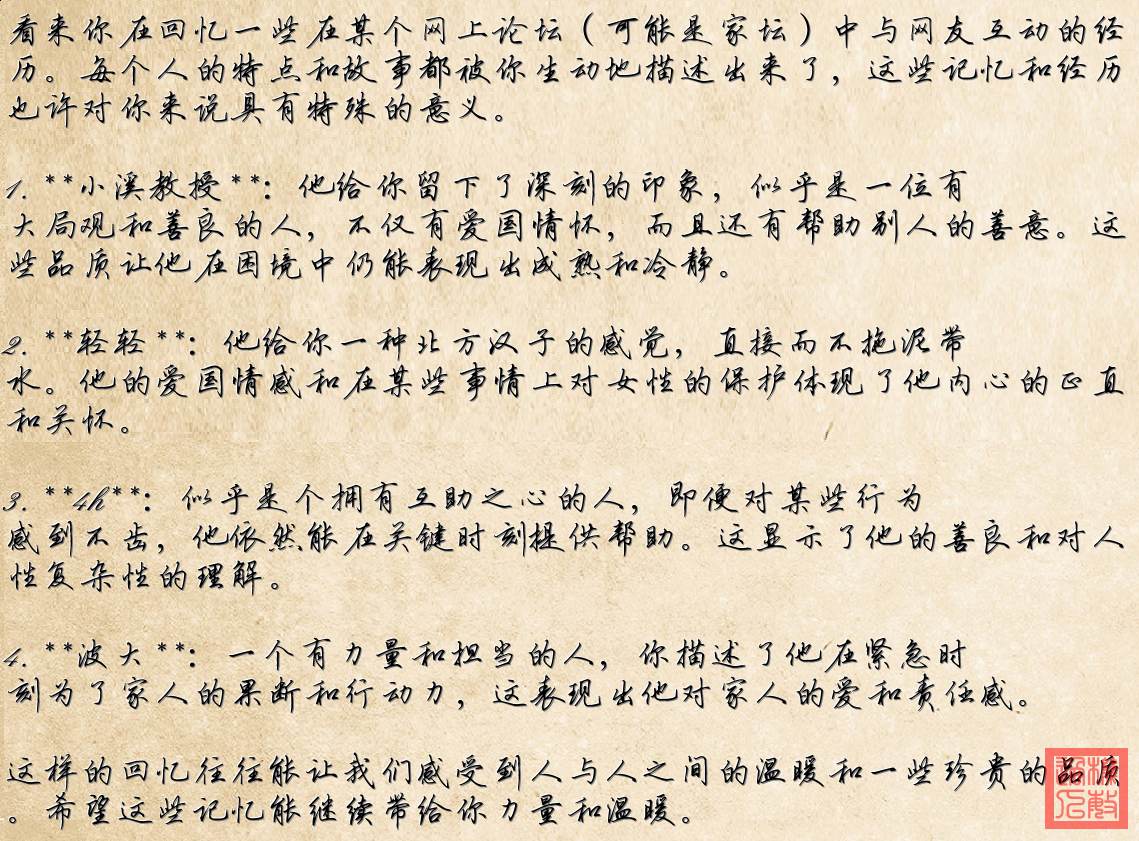 看来你在回忆一些在某个网上论坛（可能是家坛）中与网友互动的经
历。每个人的特点和故事都被你生动地描述出来了，这些记忆和经历
也许对你来说具有特殊的意义。
1. **小溪教授**：他给你留下了深刻的印象，似乎是一位有
大局观和善良的人，不仅有爱国情怀，而且还有帮助别人的善意。这
些品质让他在困境中仍能表现出成熟和冷静。
2. **轻轻**：他给你一种北方汉子的感觉，直接而不拖泥带
水。他的爱国情感和在某些事情上对女性的保护体现了他内心的正直
和关怀。
3. **4h**：似乎是个拥有互助之心的人，即便对某些行为
感到不齿，他依然能在关键时刻提供帮助。这显示了他的善良和对人
性复杂性的理解。
4. **波大**：一个有力量和担当的人，你描述了他在紧急时
刻为了家人的果断和行动力，这表现出他对家人的爱和责任感。
这样的回忆往往能让我们感受到人与人之间的温暖和一些珍贵的品质
。希望这些记忆能继续带给你力量和温暖。